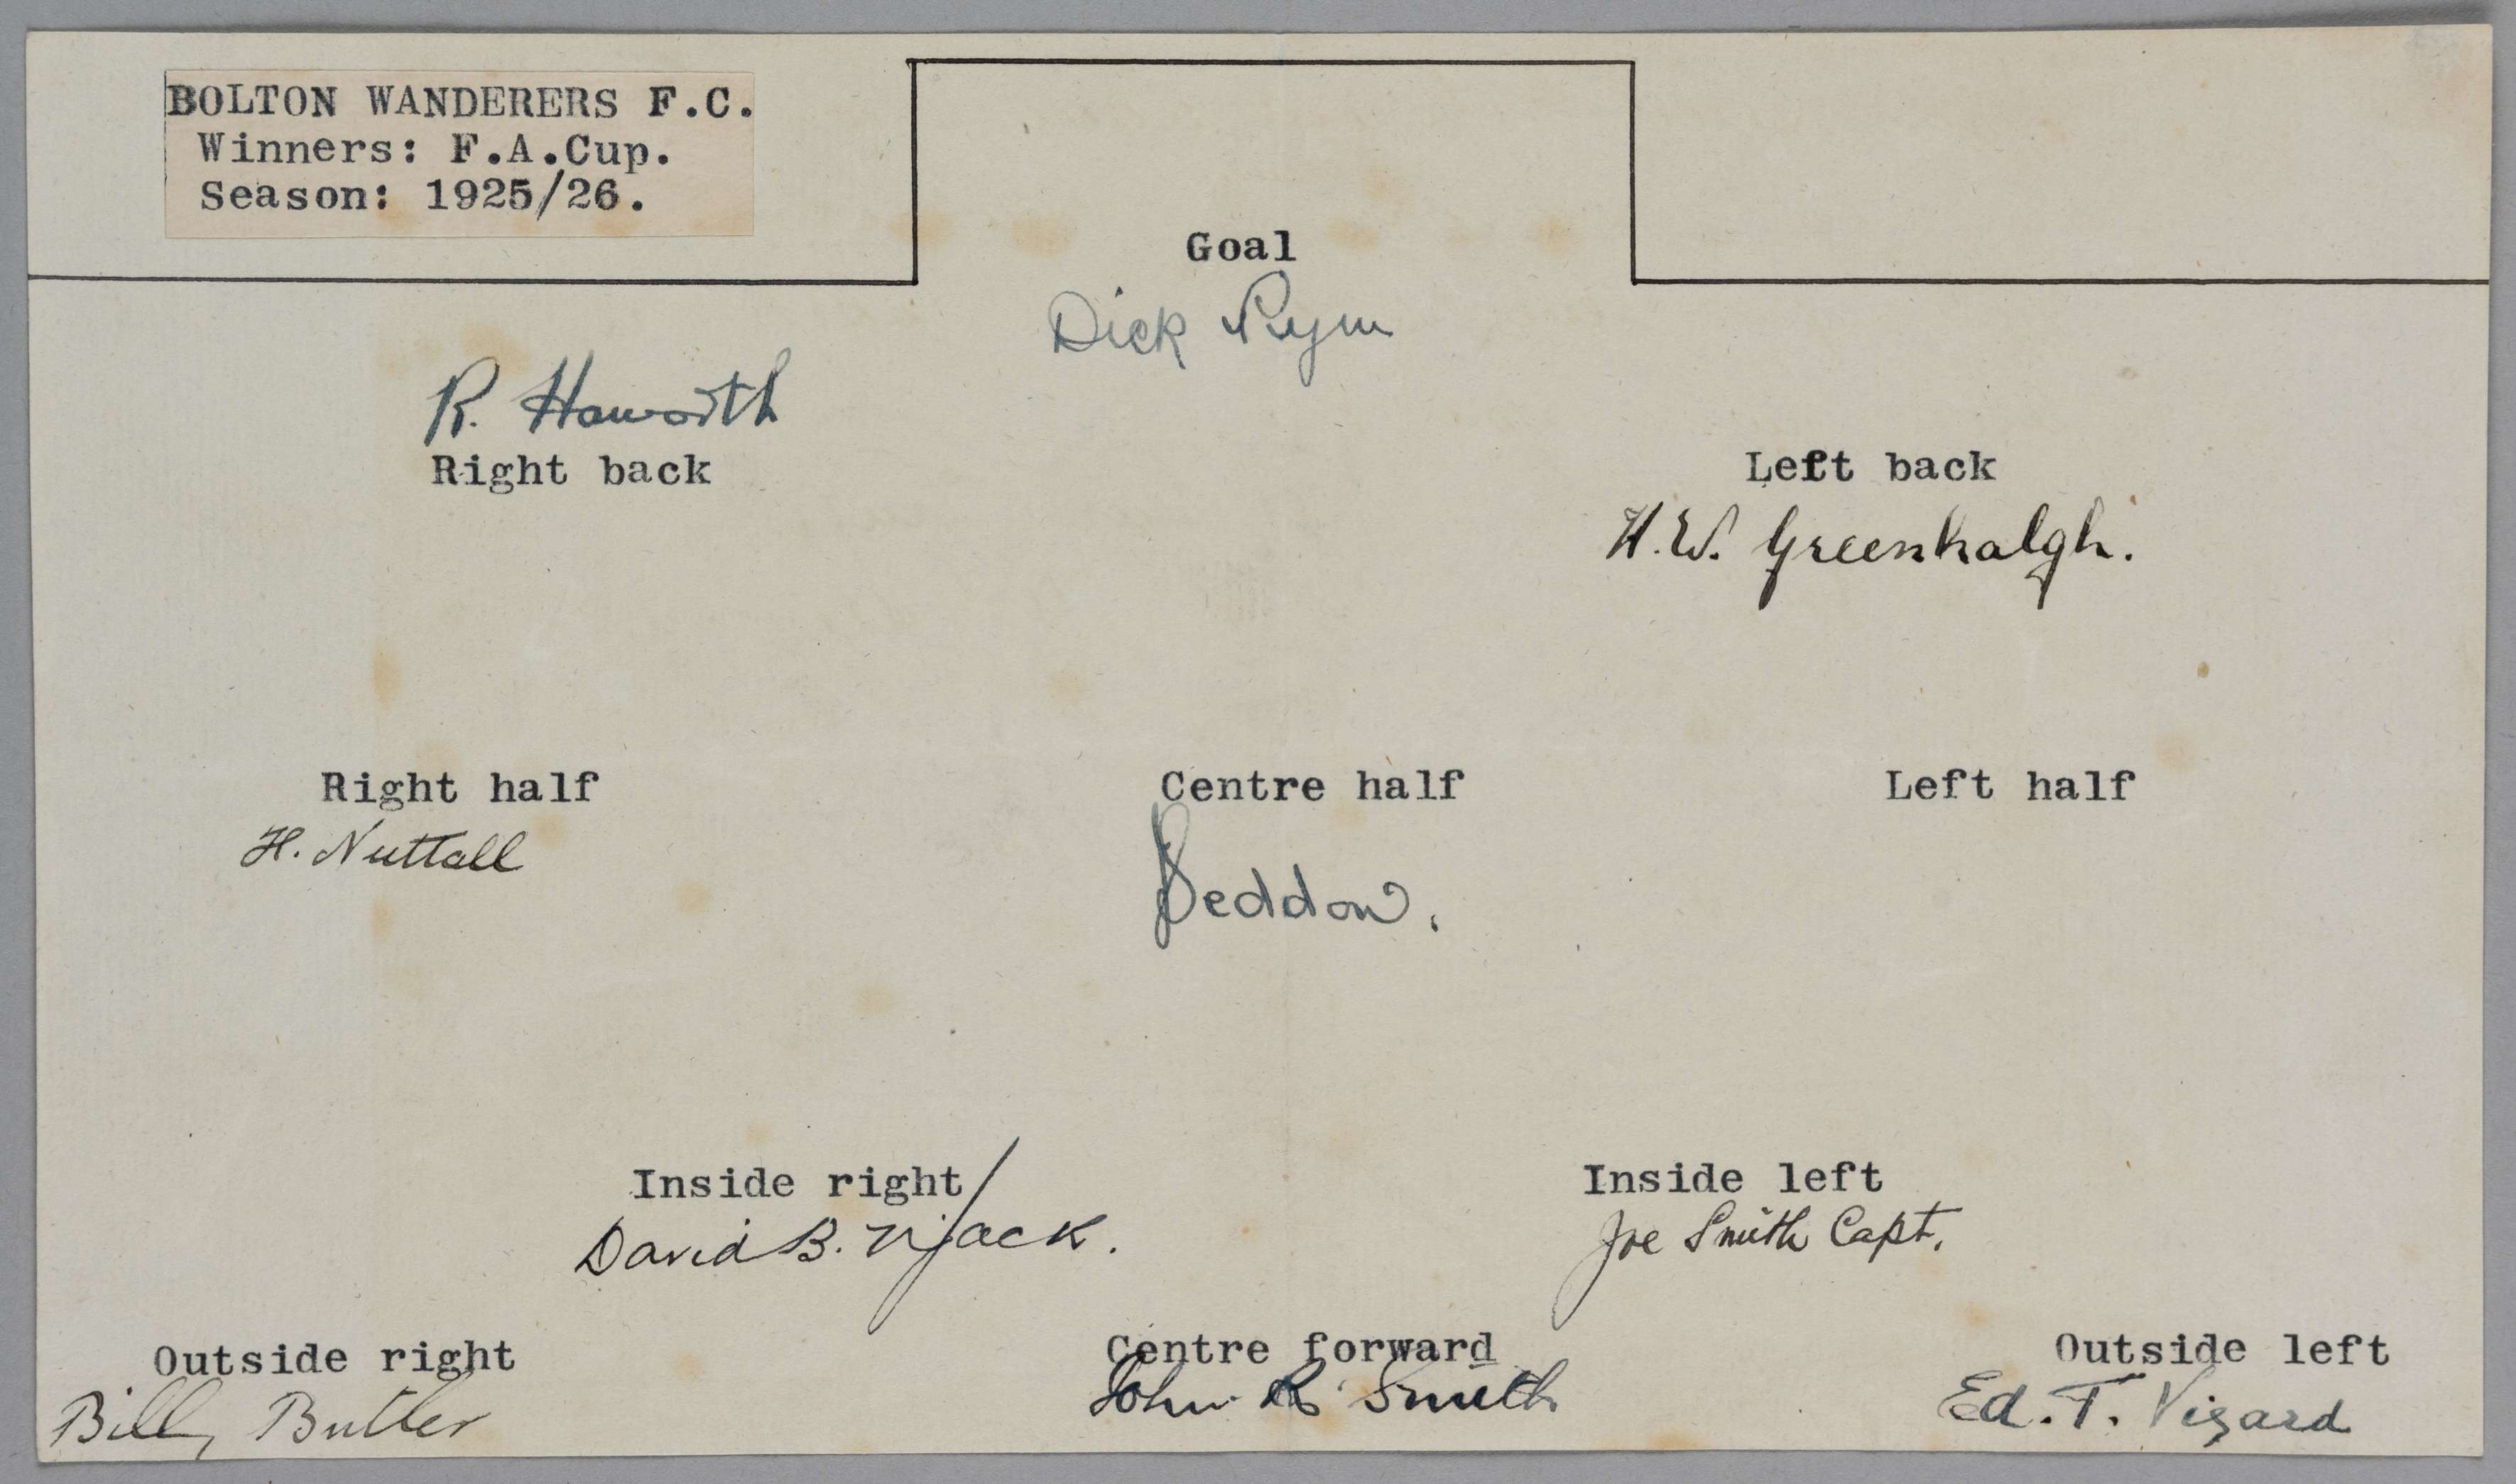 BOLTON WANDERERS F.C.
Winners: F.A.Cup.
Season: 1925/26.
Goal
Dick Pym
R. Haworth
Right back
Left back
H.W. Greenhalgh.
Right half
H. Nuttall
Centre half
Seddon.
Left half
Inside right
David B. N. Jack.
Inside left
Joe Smith Capt.
Outside right
Billy Butler
Centre forward
John R Smith
Outside left
Ed. T. Vizard